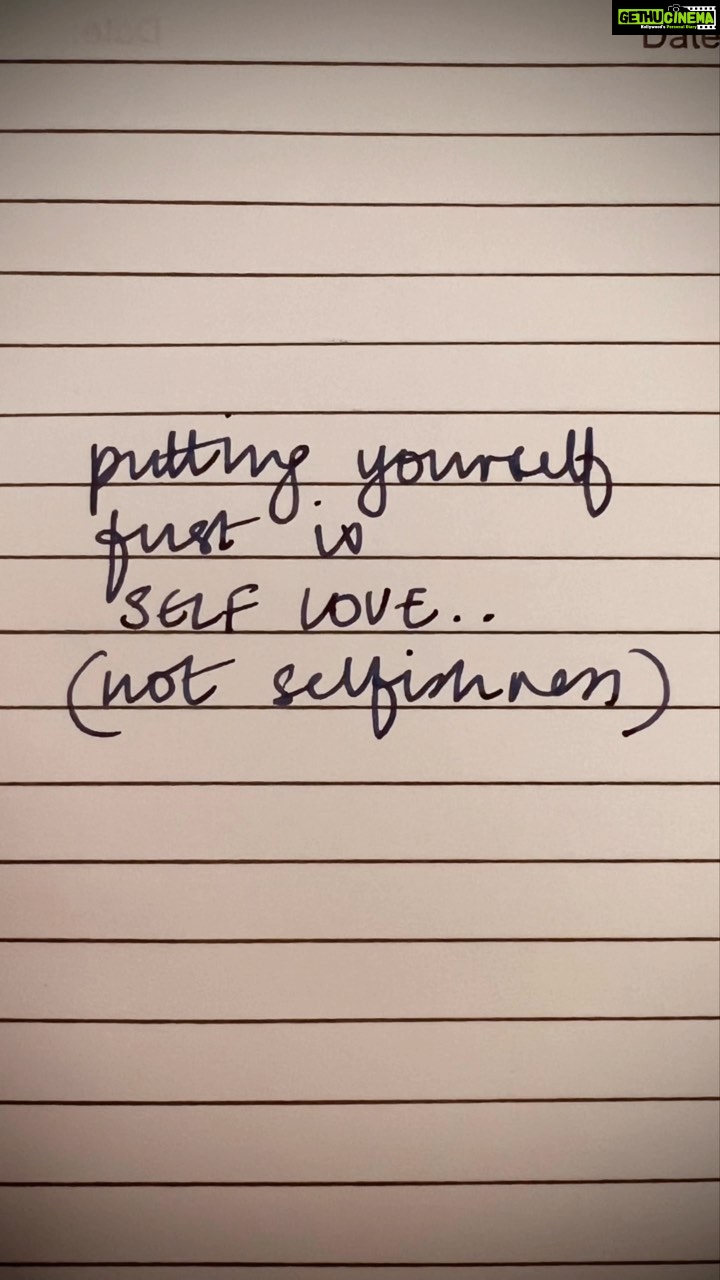 GETHUCINEMA
Kollywood's Personal Diary
Date
Date:
putting yourself
first is
SELF LOVE..
(not selfishness)